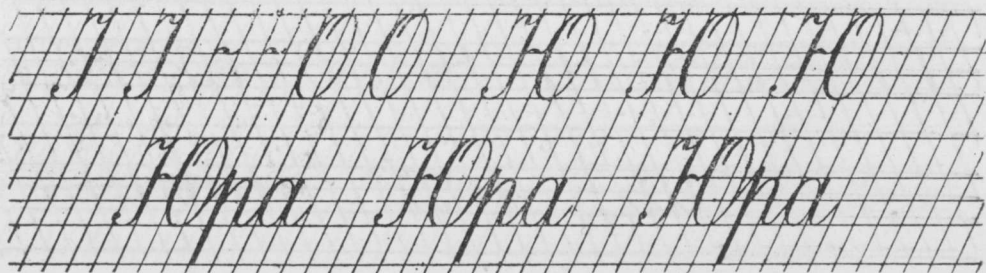 О О Ю Ю Ю
Юра Юра Юра